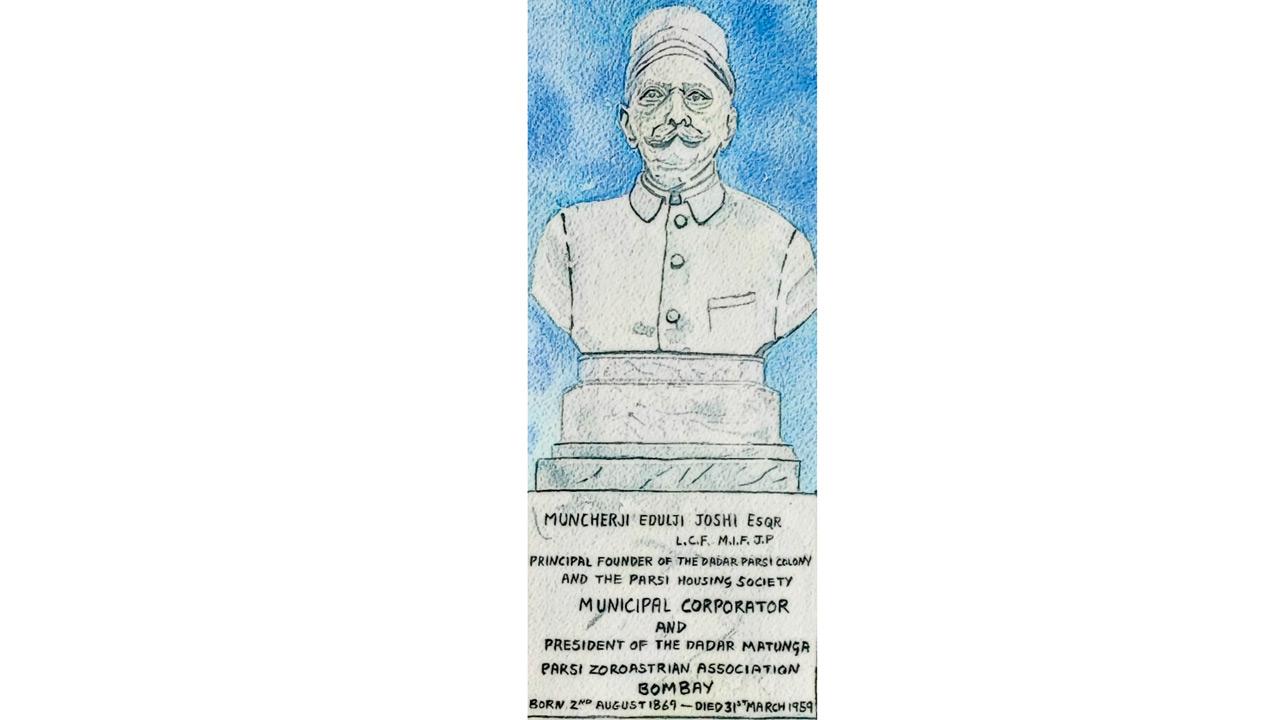 MUNCHERJI EDULJI JOSHI ESQR
L.C.F. M.I.F. J.P
PRINCIPAL FOUNDER OF THE DADAR PARSI COLONY
AND THE PARSI HOUSING SOCIETY
MUNICIPAL CORPORATOR
AND
PRESIDENT OF THE DADAR MATUNGA
PARSI ZOROASTRIAN ASSOCIATION
BOMBAY
BORN 2ND AUGUST 1869 — DIED 31ST MARCH 1959